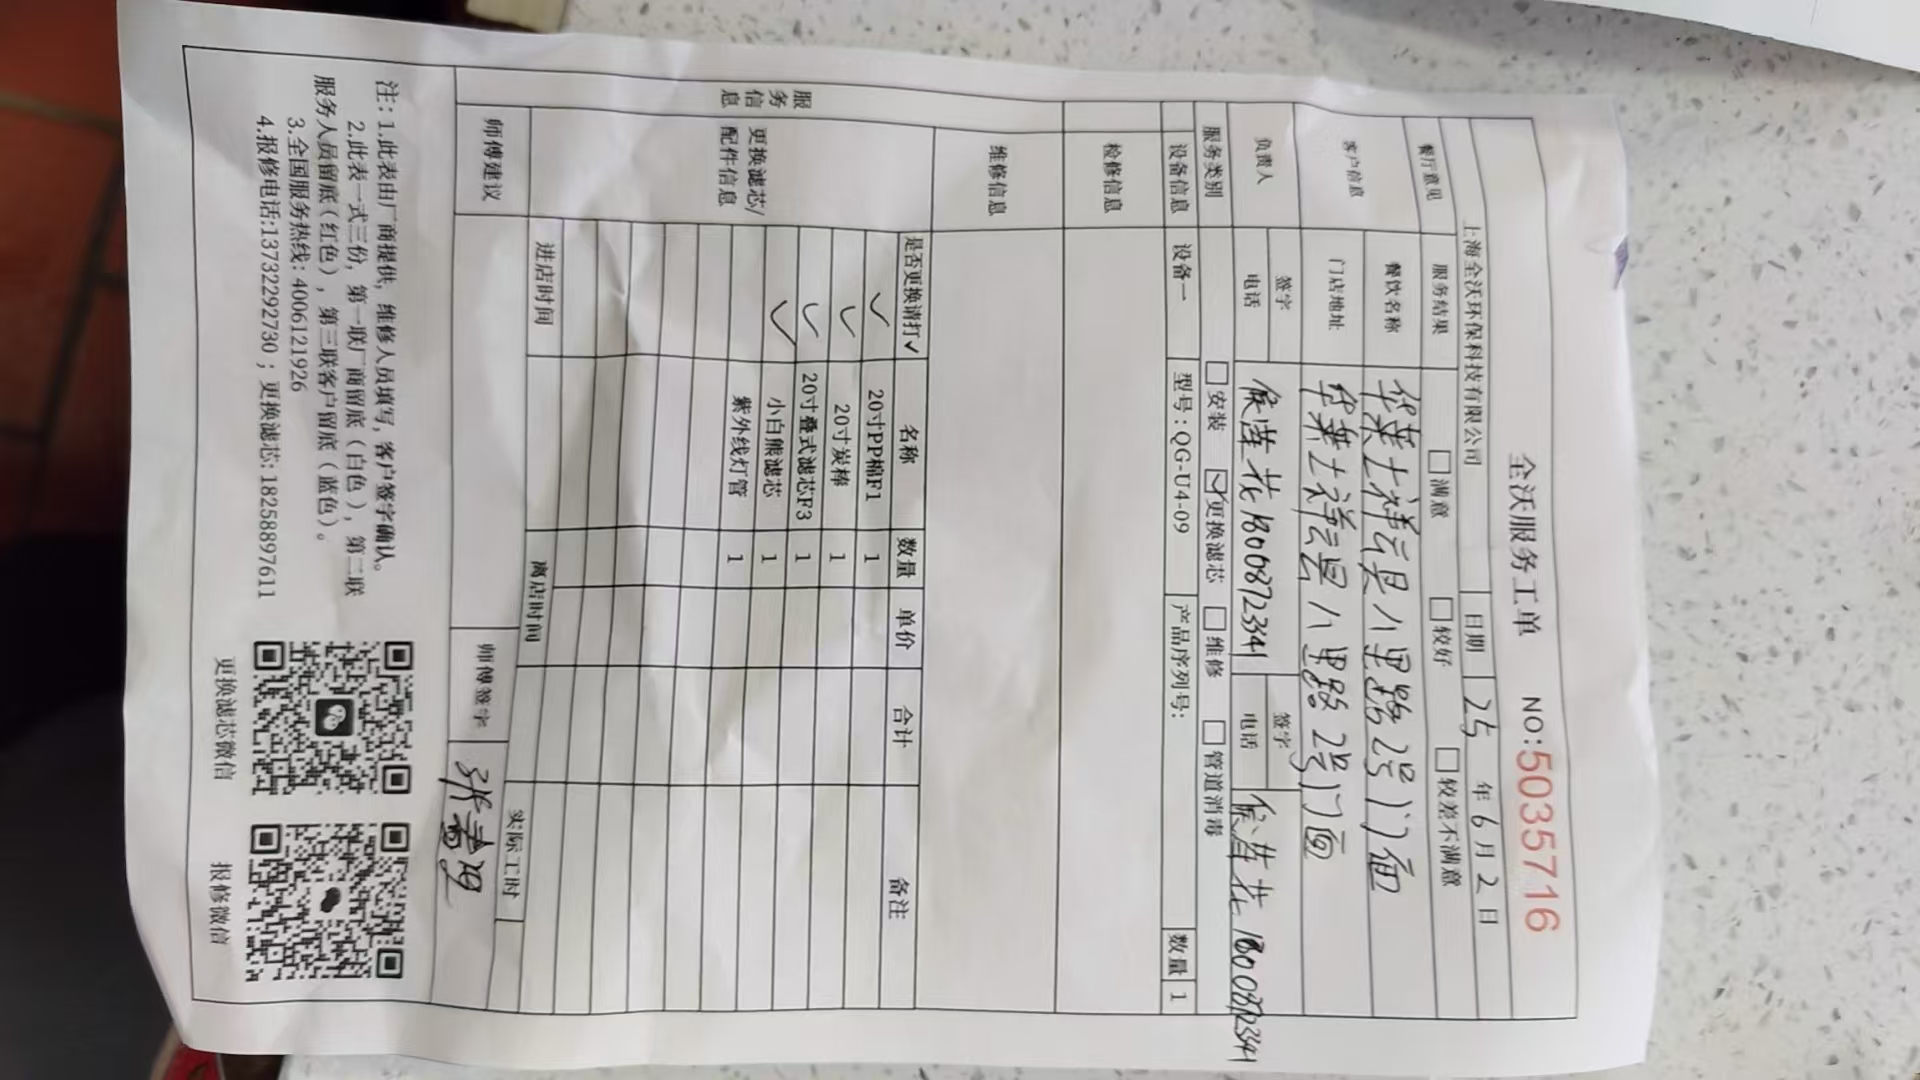 全沃服务工单 NO:5035716
上海全沃环保科技有限公司 日期 25年6月2日
餐厅意见 服务结果 □满意 □较好 □较差不满意
客户信息 餐饮名称 华莱士祥云县八里路2号门面
门店地址 华莱士祥云县八里路2号门面
负责人 签字 签字
电话 侯莲花18008723341 电话 侯莲花18008723341
服务类别 □安装 ☑更换滤芯 □维修 □管道消毒
设备信息 设备一 型号:QG-U4-09 产品序列号: 数量 1
检修信息
维修信息
服务信息
更换滤芯/配件信息
是否更换请打✓ 名称 数量 单价 合计 备注
✓ 20寸PP棉F1 1
✓ 20寸炭棒 1
✓ 20寸叠式滤芯F3 1
✓ 小白熊滤芯 1
紫外线灯管 1
进店时间 离店时间 实际工时
师傅建议 师傅签字
注:1.此表由厂商提供,维修人员填写,客户签字确认。
2.此表一式三份,第一联厂商留底(白色),第二联
服务人员留底(红色),第三联客户留底(蓝色)。
3.全国服务热线:4006121926
4.报修电话:13732292730;更换滤芯:18258897611
更换滤芯微信 报修微信